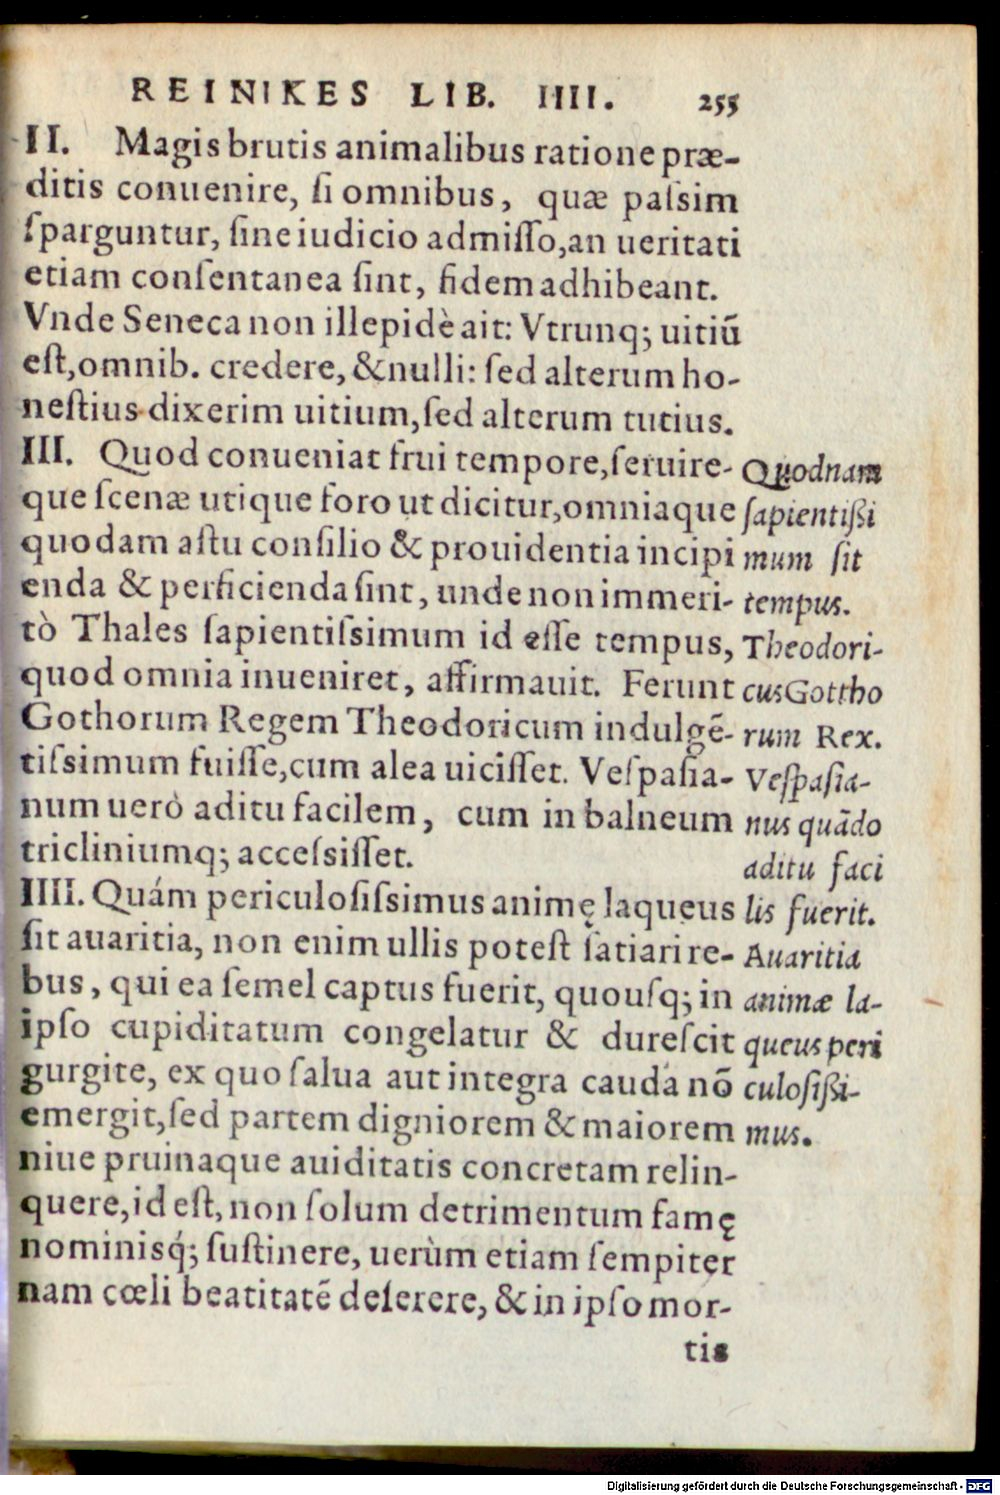 REINIKES LIB. IIII. 255
II. Magis brutis animalibus ratione præ-
ditis conuenire, ſi omnibus, quæ paſsim
ſparguntur, ſine iudicio admiſſo, an ueritati
etiam conſentanea ſint, fidem adhibeant.
Vnde Seneca non illepidè ait: Vtrunq; uitiũ
eſt, omnib. credere, & nulli: ſed alterum ho-
neſtius dixerim uitium, ſed alterum tutius.
III. Quod conueniat frui tempore, ſeruire-
que ſcenæ utique foro ut dicitur, omniaque
quodam aſtu conſilio & prouidentia incipi
enda & perficienda ſint, unde non immeri-
tò Thales ſapientiſsimum id eſſe tempus,
quod omnia inueniret, affirmauit. Ferunt
Gothorum Regem Theodoricum indulgẽ-
tiſsimum fuiſſe, cum alea uiciſſet. Veſpaſia-
num uerò aditu facilem, cum in balneum
tricliniumq; acceſsiſſet.
IIII. Quám periculoſiſsimus animę laqueus
ſit auaritia, non enim ullis poteſt ſatiari re-
bus, qui ea ſemel captus fuerit, quouſq; in
ipſo cupiditatum congelatur & dureſcit
gurgite, ex quo ſalua aut integra cauda nõ
emergit, ſed partem digniorem & maiorem
niue pruinaque auiditatis concretam relin-
quere, id eſt, non ſolum detrimentum famę
nominisq́; ſuſtinere, uerùm etiam ſempiter
nam cœli beatitatẽ deſerere, & in ipſo mor-
tis
Quodnam
ſapientißi
mum ſit
tempus.
Theodori-
cus Gottho
rum Rex.
Veſpaſia-
nus quãdo
aditu faci
lis fuerit.
Auaritia
animæ la-
queus peri
culoſißi-
mus.
Digitalisierung gefördert durch die Deutsche Forschungsgemeinschaft - DFG